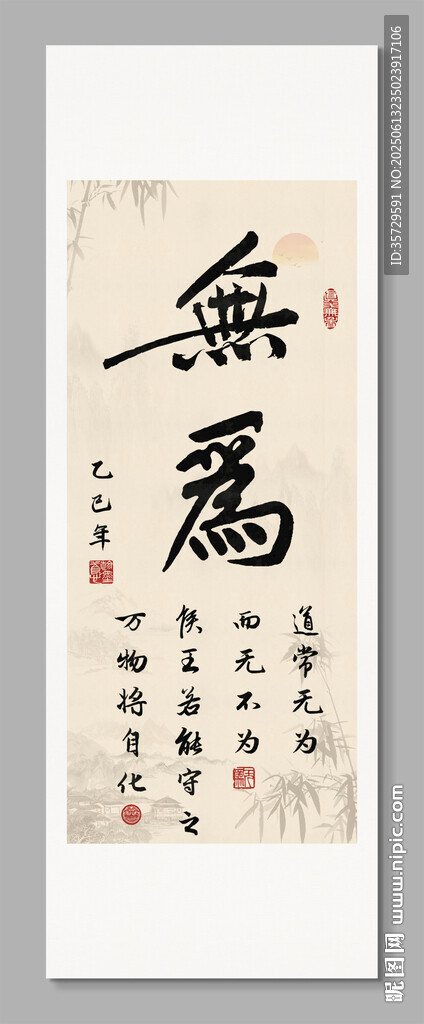 無為
道常无为
而无不为
侯王若能守之
万物将自化
乙巳年
ID:35729591 NO:20250613235023917106
昵图网 www.nipic.com